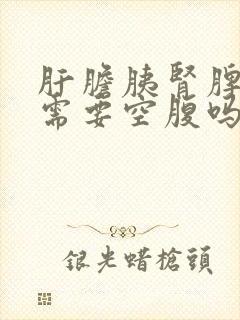 肝膽胰腎脾
需要空腹吗
银光蜡槍頭